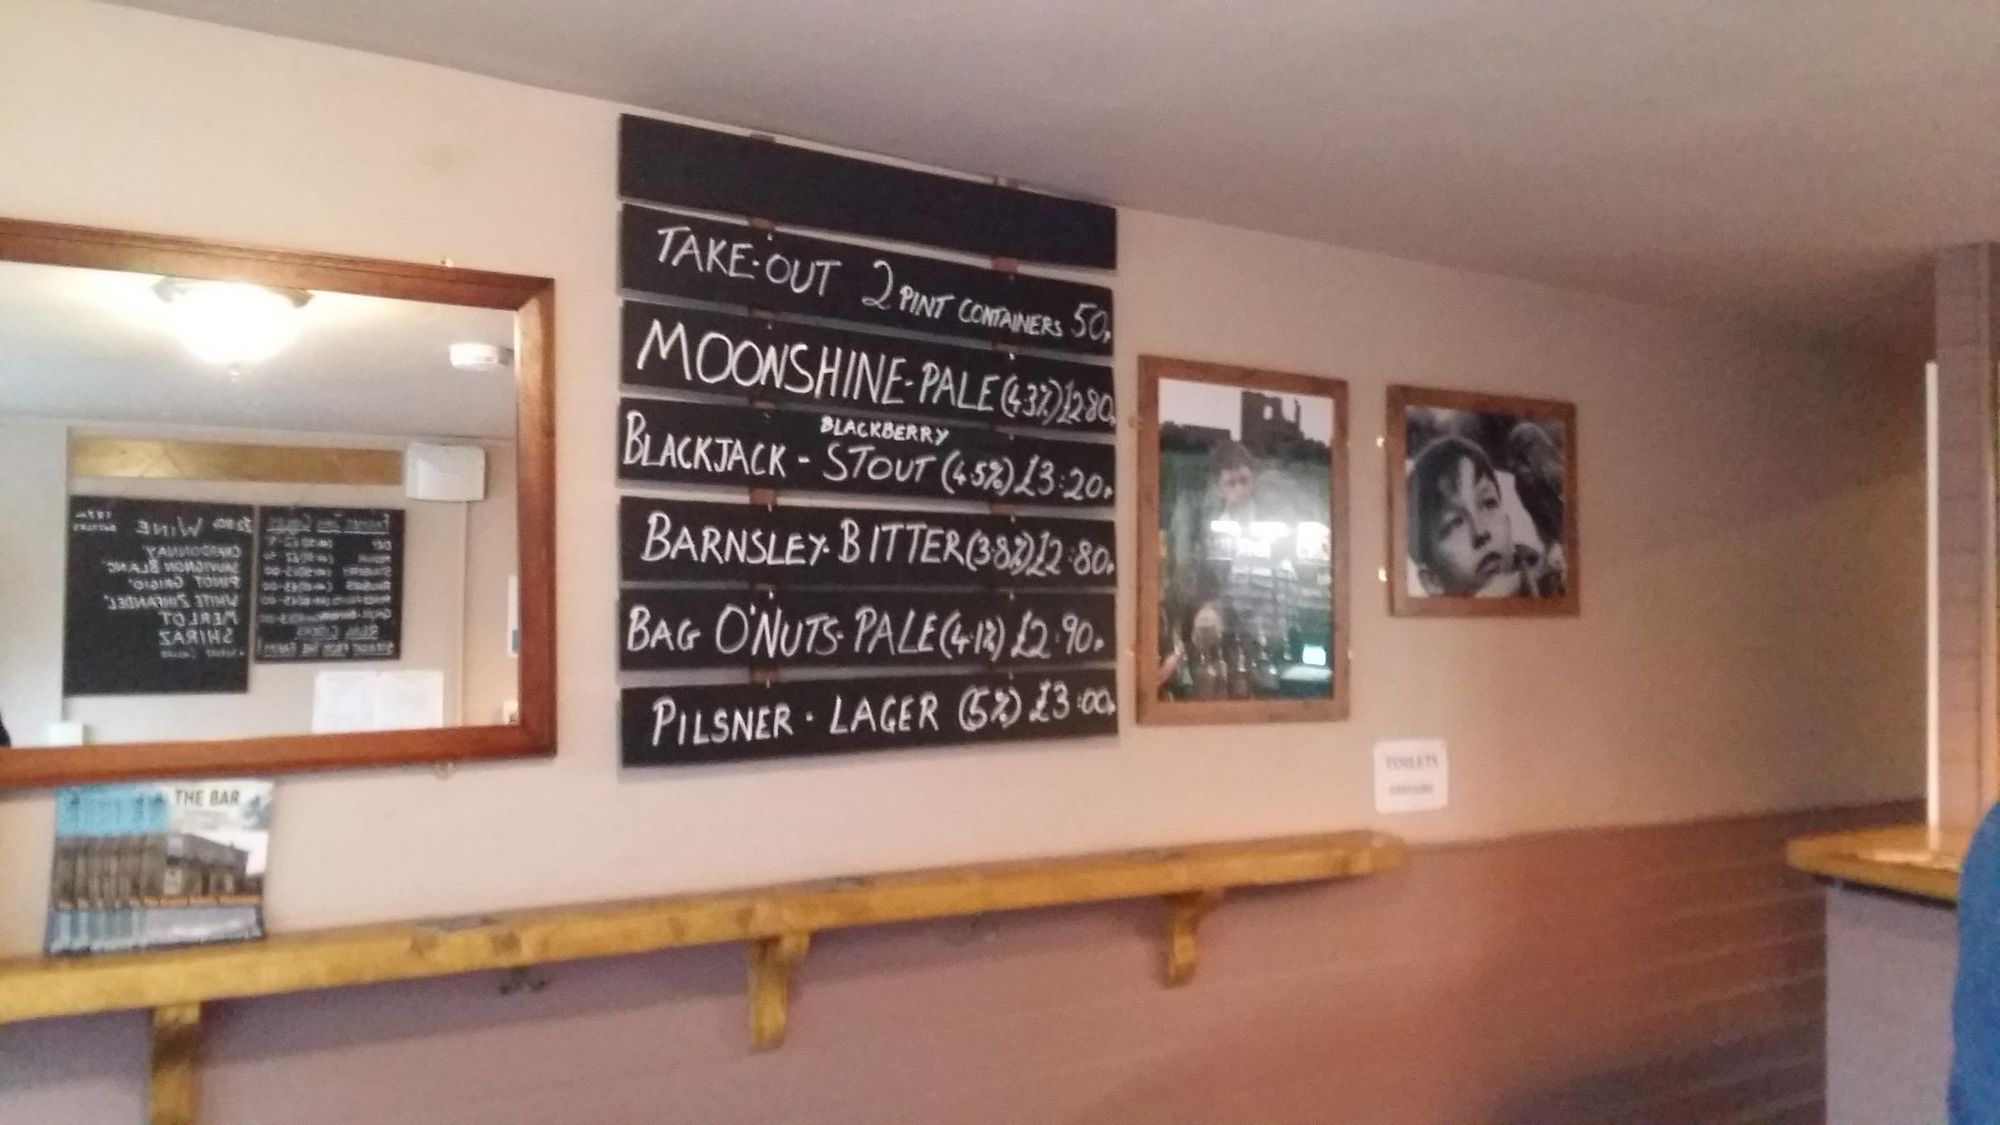 TAKE-OUT 2 PINT CONTAINERS 50p
MOONSHINE-PALE (4.3%) £2.80p
BLACKBERRY
BLACKJACK - STOUT (4.5%) £3:20p
BARNSLEY-BITTER (3.8%) £2:80p
BAG O'NUTS-PALE (4.1%) £2.90p
PILSNER - LAGER (5%) £3:00p
WINE
CHARDONNAY
SAUVIGNON BLANC
PINOT GRIGIO
WHITE ZINFANDEL
MERLOT
SHIRAZ
STRAIGHT FROM THE FARM
THE BAR
TOILETS